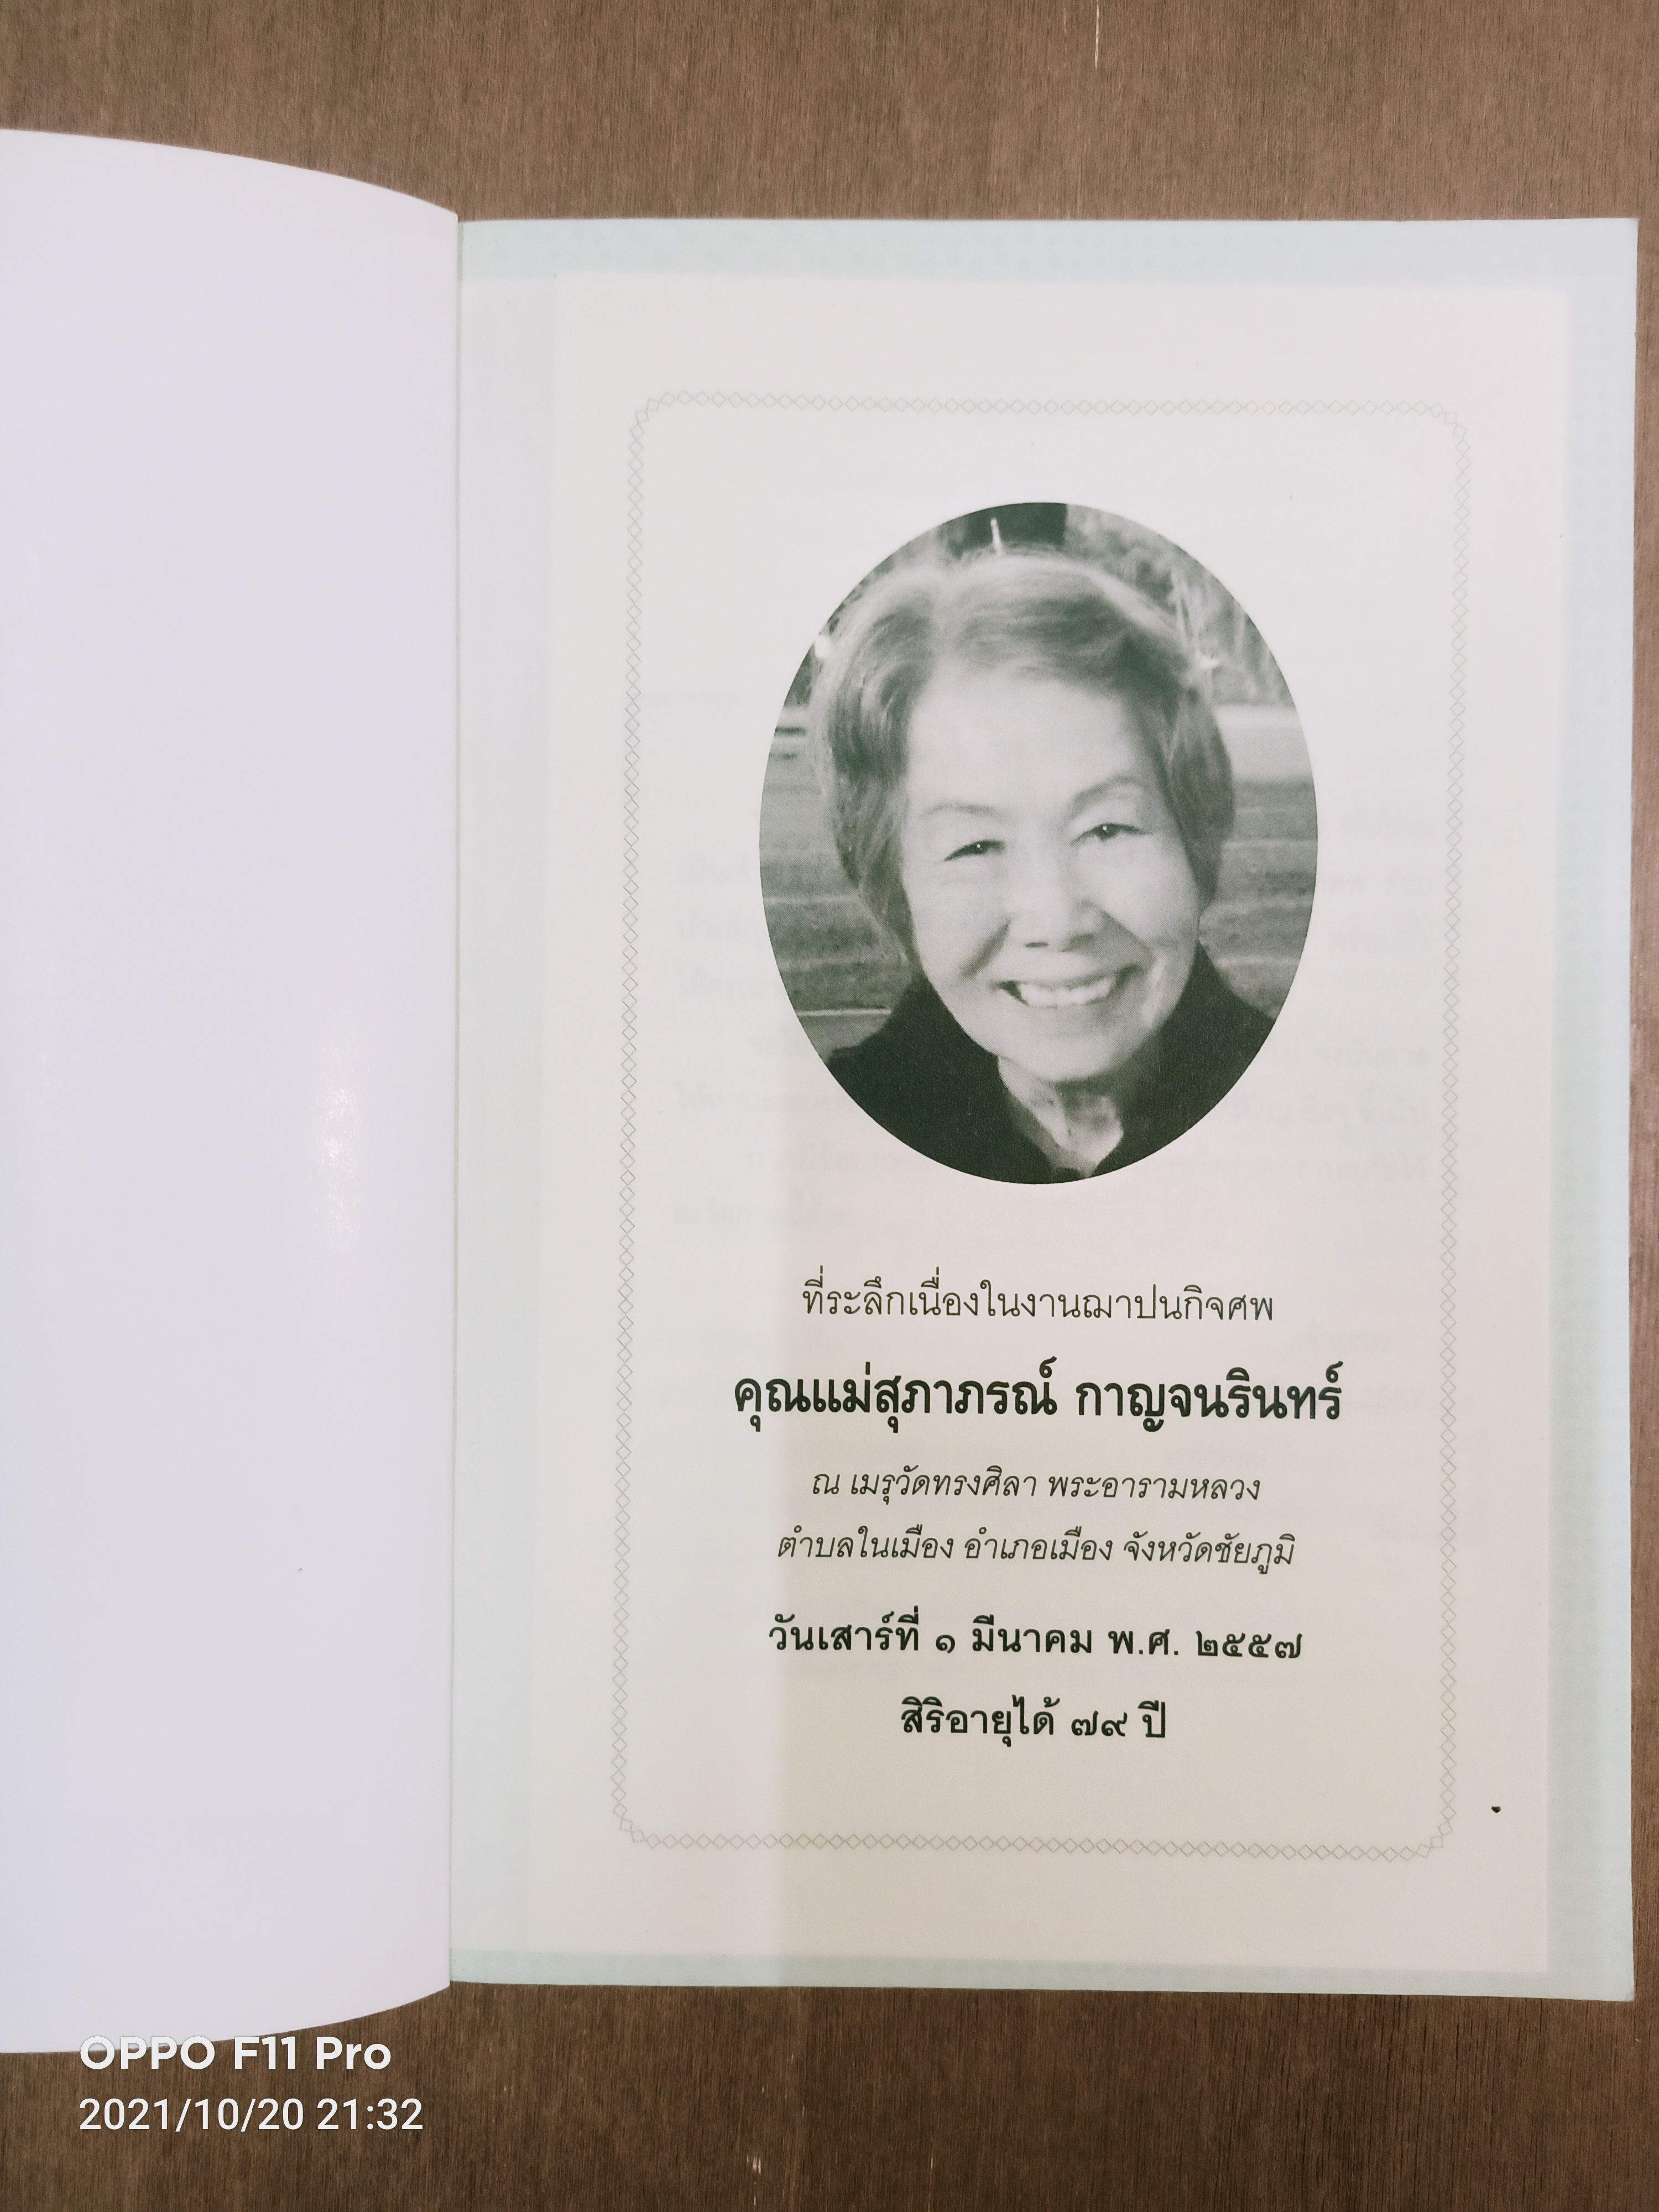 ที่ระลึกเนื่องในงานฌาปนกิจศพ
คุณแม่สุภาภรณ์ กาญจนรินทร์
ณ เมรุวัดทรงศิลา พระอารามหลวง
ตำบลในเมือง อำเภอเมือง จังหวัดชัยภูมิ
วันเสาร์ที่ ๑ มีนาคม พ.ศ. ๒๕๕๗
สิริอายุได้ ๗๙ ปี
OPPO F11 Pro
2021/10/20 21:32